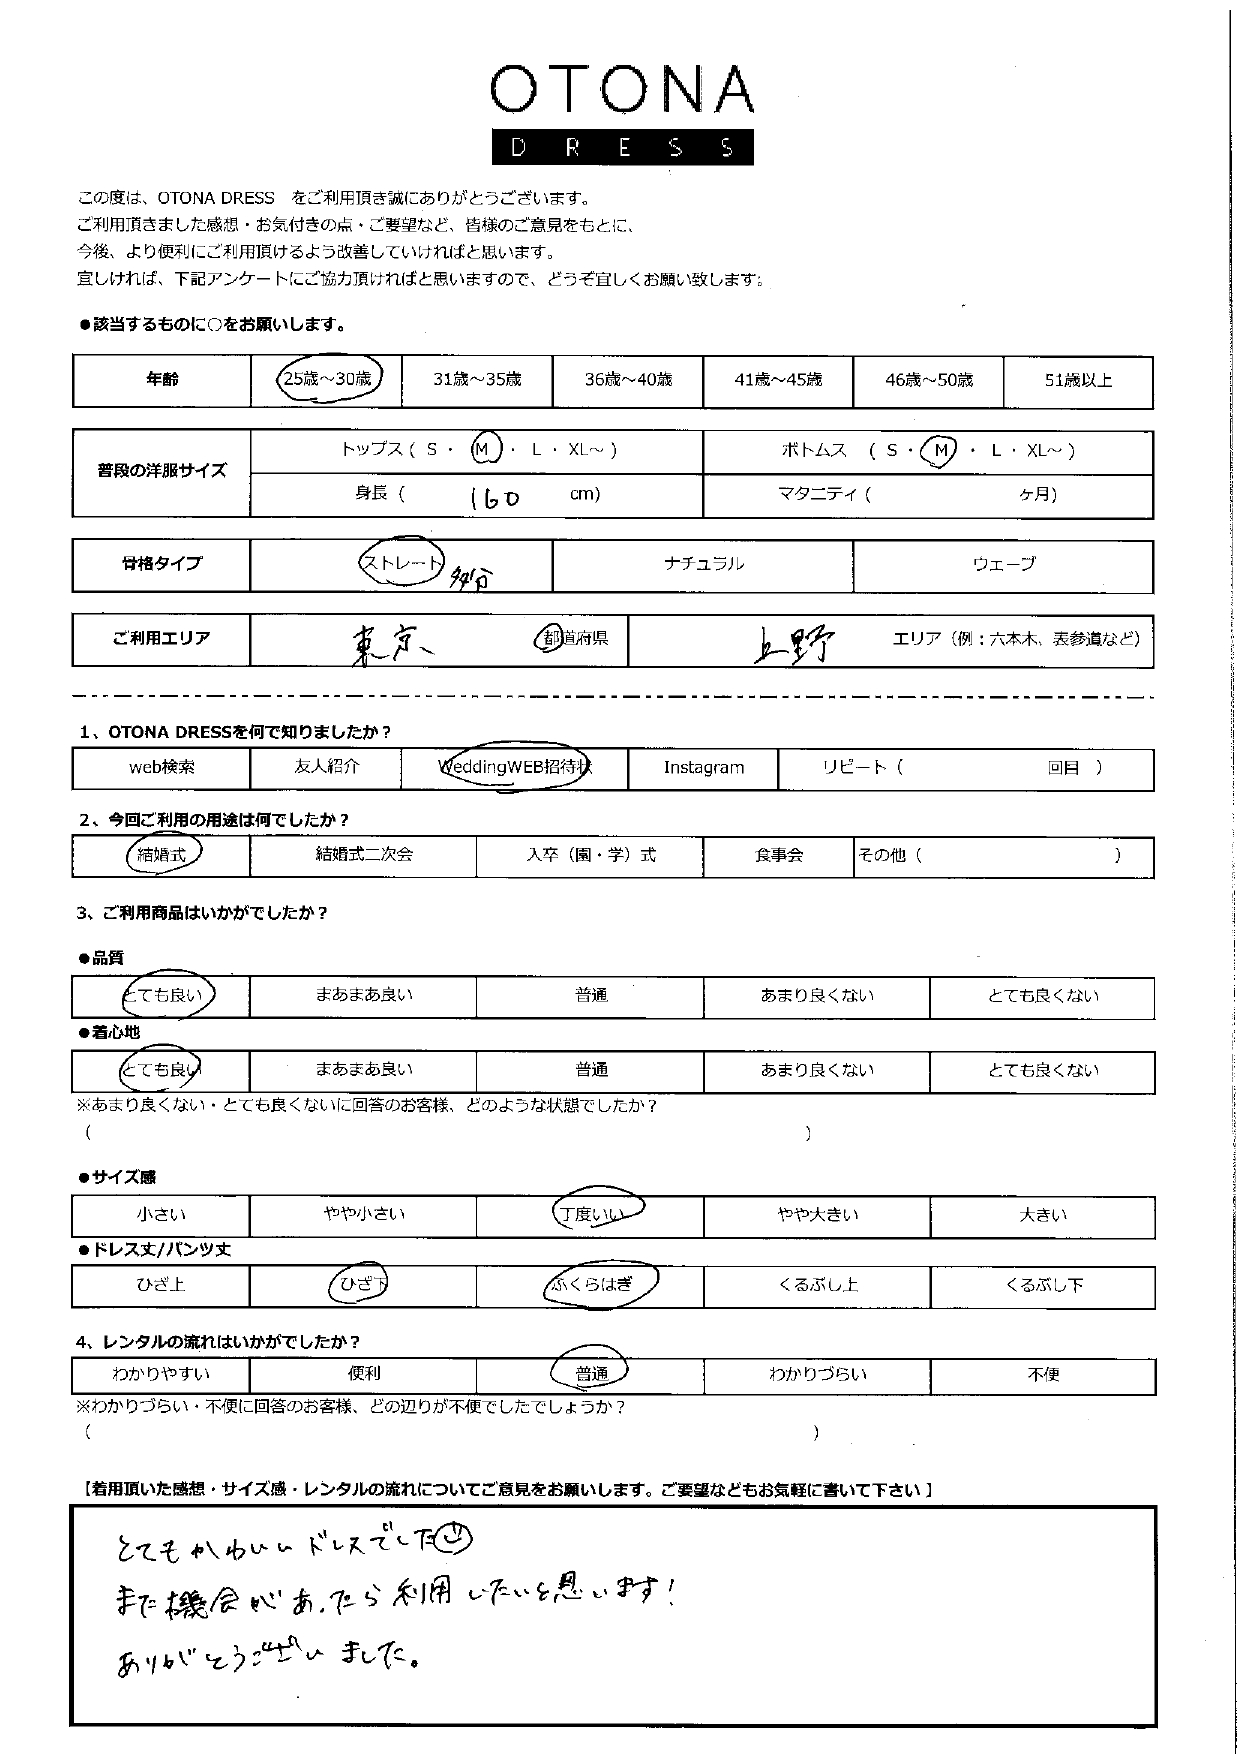 OTONA
DRESS
この度は、OTONA DRESS　をご利用頂き誠にありがとうございます。
ご利用頂きました感想・お気付きの点・ご要望など、皆様のご意見をもとに、
今後、より便利にご利用頂けるよう改善していければと思います。
宜しければ、下記アンケートにご協力頂ければと思いますので、どうぞ宜しくお願い致します。
●該当するものに○をお願いします。
年齢 25歳～30歳 31歳～35歳 36歳～40歳 41歳～45歳 46歳～50歳 51歳以上
普段の洋服サイズ トップス ( S ・ M ・ L ・ XL～ ) ボトムス ( S ・ M ・ L ・ XL～ )
身長 ( 160 cm) マタニティ ( ヶ月)
骨格タイプ ストレート 多分 ナチュラル ウェーブ
ご利用エリア 東京 都道府県 上野 エリア（例：六本木、表参道など）
1、OTONA DRESSを何で知りましたか？
web検索 友人紹介 WeddingWEB招待状 Instagram リピート ( 回目 )
2、今回ご利用の用途は何でしたか？
結婚式 結婚式二次会 入卒（園・学）式 食事会 その他 ( )
3、ご利用商品はいかがでしたか？
●品質
とても良い まあまあ良い 普通 あまり良くない とても良くない
●着心地
とても良い まあまあ良い 普通 あまり良くない とても良くない
※あまり良くない・とても良くないに回答のお客様、どのような状態でしたか？
( )
●サイズ感
小さい やや小さい 丁度いい やや大きい 大きい
●ドレス丈/パンツ丈
ひざ上 ひざ下 ふくらはぎ くるぶし上 くるぶし下
4、レンタルの流れはいかがでしたか？
わかりやすい 便利 普通 わかりづらい 不便
※わかりづらい・不便に回答のお客様、どの辺りが不便でしたでしょうか？
( )
【着用頂いた感想・サイズ感・レンタルの流れについてご意見をお願いします。ご要望などもお気軽に書いて下さい】
とてもかわいいドレスでした
また機会があったら利用したいと思います！
ありがとうございました。